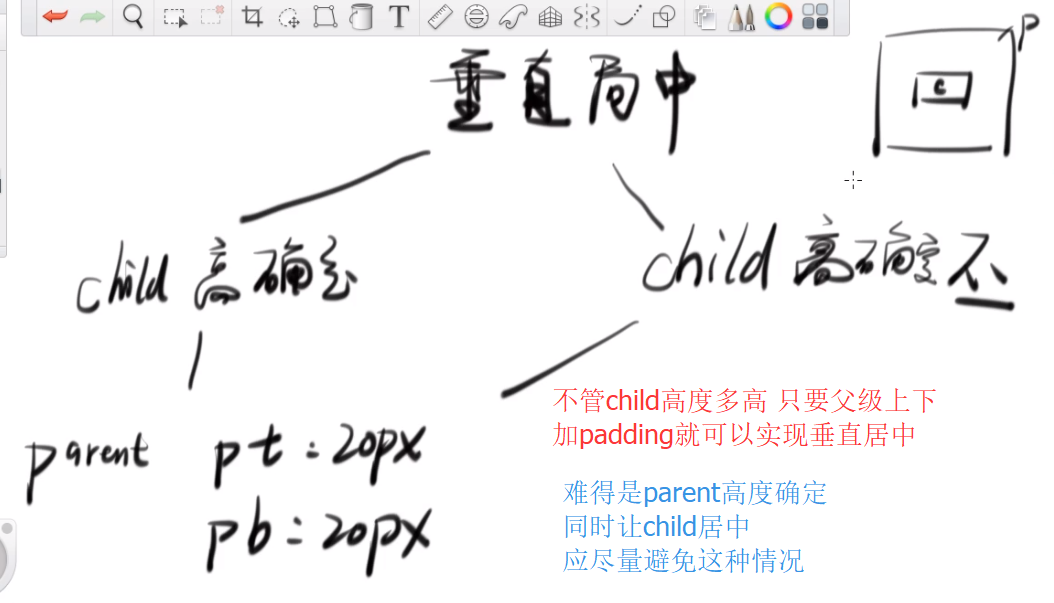 垂直局中
P
c
child 高确定
child 高确定不
parent pt:20px
pb:20px
不管child高度多高 只要父级上下
加padding就可以实现垂直居中
难得是parent高度确定
同时让child居中
应尽量避免这种情况